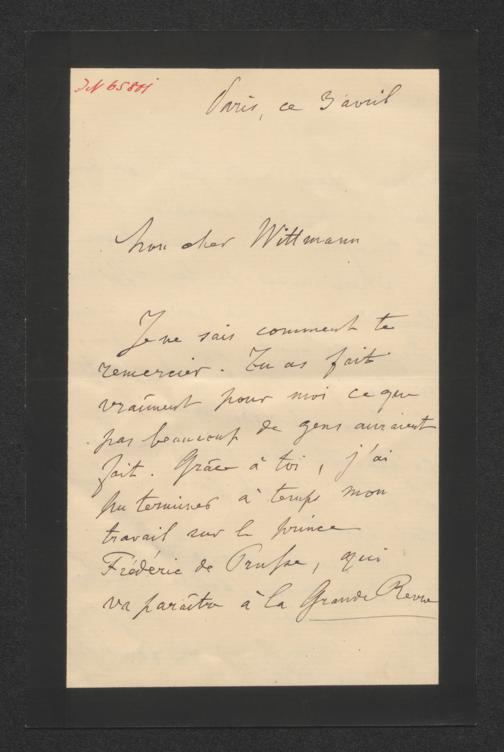 JN 65801
Paris, ce 3 avril
Mon cher Wittmann
Je ne sais comment te
remercier. Tu as fait
vraiment pour moi ce que
pas beaucoup de gens auraient
fait. Grâce à toi, j'ai
pu terminer à temps mon
travail sur le prince
Frédéric de Prusse, qui
va paraître à la Grande Revue